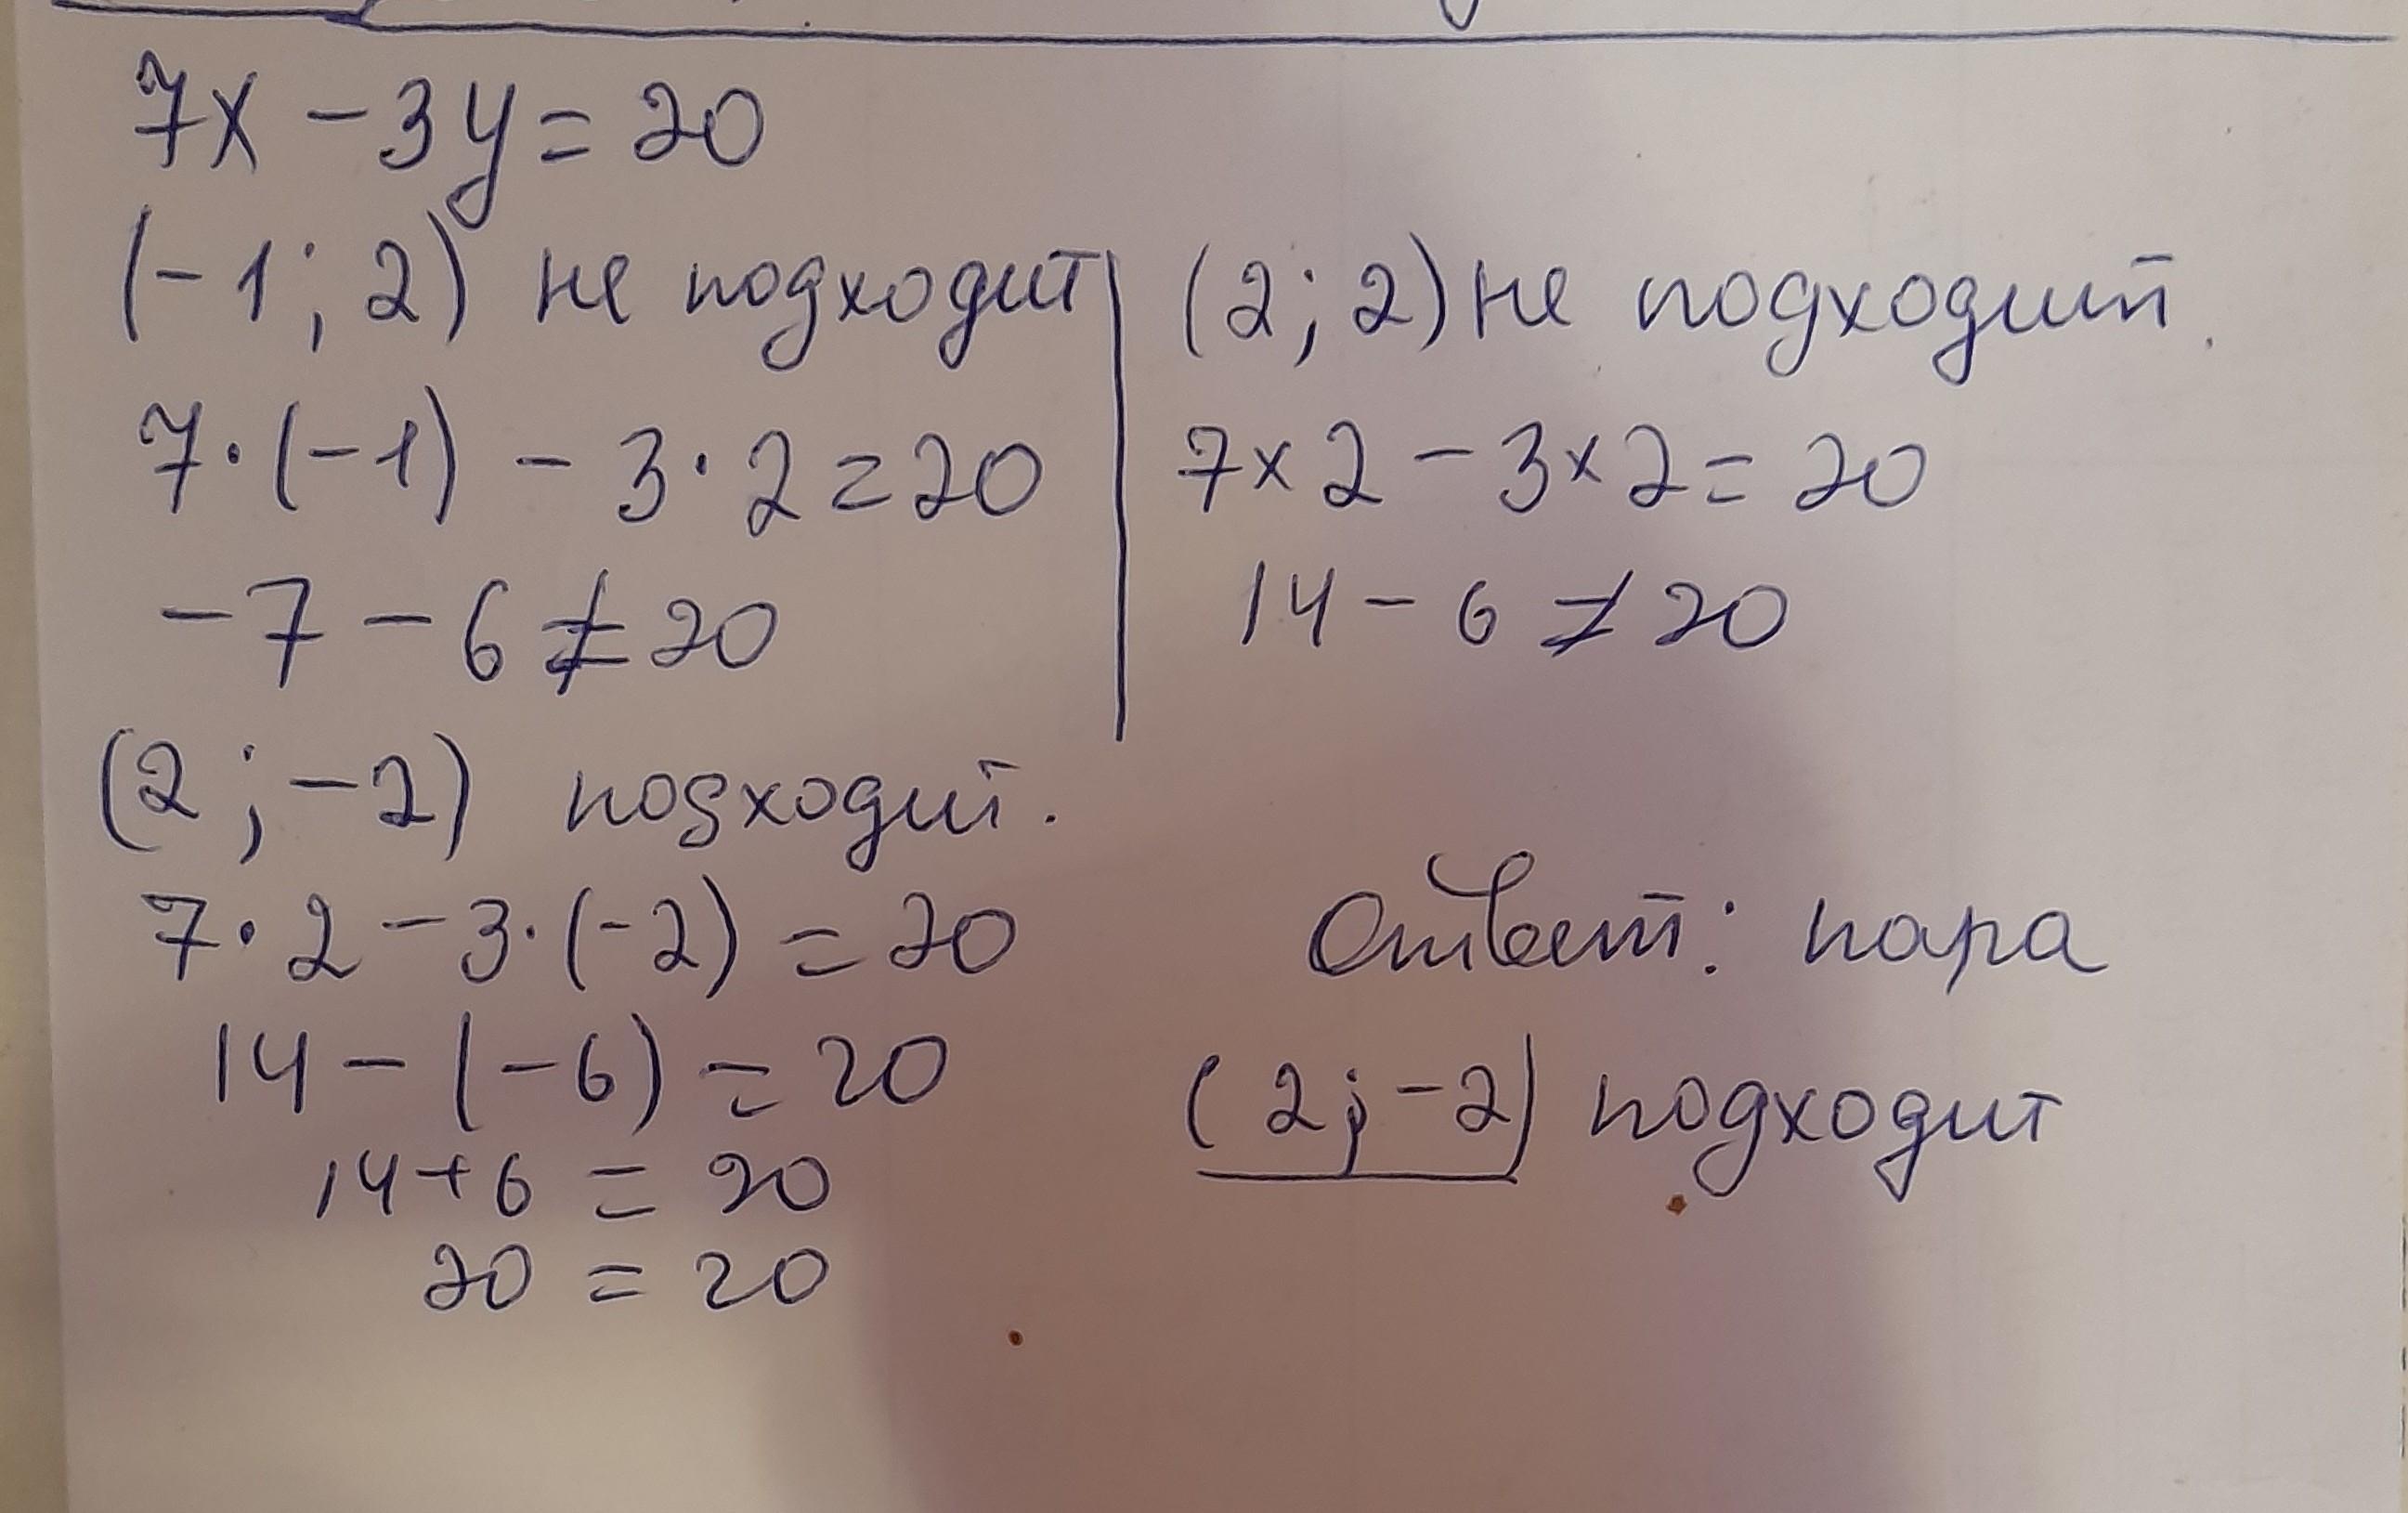 7x - 3y = 20
(-1; 2) не подходит
7·(-1) - 3·2 = 20
-7 - 6 ≠ 20
(2; 2) не подходит.
7×2 - 3×2 = 20
14 - 6 ≠ 20
(2; -2) подходит.
7·2 - 3·(-2) = 20
14 - (-6) = 20
14+6 = 20
20 = 20
Ответ: пара
(2; -2) подходит